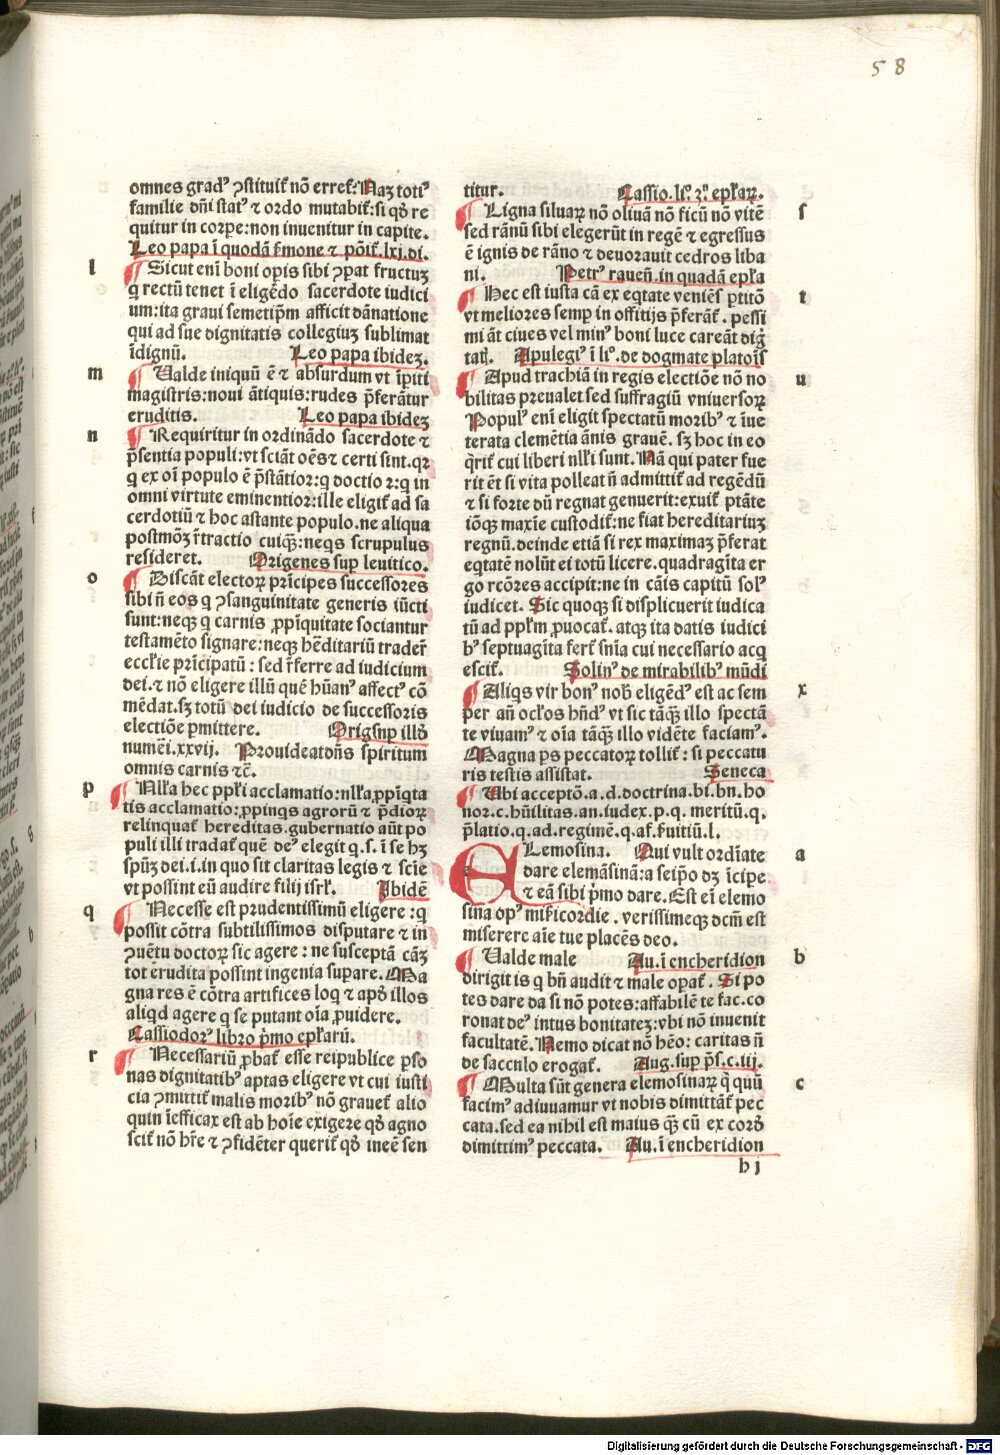 58
omnes gradꝰ ꝯstituit᷑ nō erret᷑: Naȝ totiꝰ
familie dn̄i statꝰ ⁊ ordo mutabit᷑: si qd̛ re
quitur in corpe: non inuenitur in capite.
Leo papa ī quodā ẜmone ⁊ pōit᷑. lxj. di.
l Sicut eni boni opis sibi ꝯpat fructuȝ
q rectū tenet ī eligēdo sacerdote iudici
um: ita graui semetip̄m afficit dānatione
qui ad sue dignitatis collegiuȝ sublimat
īdignū. Leo papa ibideȝ.
m Ualde iniquū ē ⁊ absurdum vt īpiti
magistris: noui ātiquis: rudes p̄ferātur
eruditis. Leo papa ibideȝ
n Requiritur in ordinādo sacerdote ⁊
p̄sentia populi: vt sciāt oēs ⁊ certi sint. qꝛ
q ex oī populo ē p̄stātior: q doctior: q in
omni virtute eminentior: ille eligit᷑ ad sa
cerdotiū ⁊ hoc astante populo. ne aliqua
postmoȝ r̄tractio cuiqȝ: neqs scrupulus
resideret. Origenes sup leuitico.
o Discāt electoꝝ pr̄icipes successores
sibi n̄ eos q ꝯsanguinitate generis iūcti
sunt: neqȝ q carnis ꝓpīquitate sociantur
testamēto signare: neqȝ hēditariū trader̄
eccl̄ie pr̄icipatū: sed r̄ferre ad iudicium
dei. ⁊ nō eligere illū quē hūanꝰ affectꝰ cō
mēdat. sȝ totū dei iudicio de successoris
electiōe pmittere. Orig sup illd̛
numēi. xxvij. Prouideat dn̄s spiritum
omnis carnis ⁊c̄.
p Nll̄a hec ppl̄i acclamatio: nll̄a ꝓpīqta
tis acclamatio: ꝓpinqs agroꝝ ⁊ p̄dioꝝ
relinquat᷑ hereditas. gubernatio aūt po
puli illi tradat᷑ quē deꝰ elegit q. s. ī se hȝ
spūȝ dei. i. in quo sit claritas legis ⁊ scīe
vt possint eū audire filij isrl̄. Ibidē
q Necesse est prudentissimū eligere: q
possit cōtra subtilissimos disputare ⁊ in
ꝯuētu doctoꝝ sic agere: ne susceptā cāȝ
tot erudita possint ingenia supare. Ma
gna res ē cōtra artifices loq ⁊ apd̛ illos
aliqd agere q se putant oīa ꝓuidere.
Cassiodorꝰ libro p̄mo epl̄arū.
r Necessariū ꝓbat᷑ esse reipublice pso
nas dignitatibꝰ aptas eligere vt cui iusti
cia ꝯmittit᷑ malis moribꝰ nō grauet᷑ alio
quin īefficax est ab hoīe exigere qd̛ agno
scit᷑ nō hr̄e ⁊ ꝯfidēter querit᷑ qd̛ ineē sen
titur. Cassio. liꝰ. ꝫꝰ. epl̄aꝝ.
s Ligna siluaꝝ nō oliuā nō ficū nō vitē
sed rānū sibi elegerūt in regē ⁊ egressus
ē ignis de rāno ⁊ deuorauit cedros liba
ni. Petrꝰ rauen̄. in quadā epl̄a
t Hec est iusta cā ex eqtate veniēs ptitō
vt meliores semp in offitijs p̄ferāt᷑. pessi
mi āt ciues vel minꝰ boni luce careāt dig
tatꝭ. Apulegiꝰ ī liꝰ. de dogmate platoīs
u Apud trachiā in regis electiōe nō no
bilitas preualet sed suffragiū vniuersoꝝ
Populꝰ eni eligit spectatū moribꝰ ⁊ īue
terata clemētia ānis grauē. sȝ hoc in eo
q̄rit᷑ cui liberi nll̄i sunt. Nā qui pater fue
rit ēt si vita polleat n̄ admittit᷑ ad regēdū
⁊ si forte dū regnat genuerit: exuit᷑ ptāte
iōqȝ maxīe custodit᷑: ne fiat hereditariuȝ
regnū. deinde etiā si rex maximaȝ p̄ferat
eqtatē nolūt ei totū licere. quadragīta er
go rcōres accipit: ne in cāis capitū solꝰ
iudicet. Sic quoqȝ si displicuerit iudica
tū ad ppl̄m ꝓuocat᷑. atqȝ ita datis iudici
bꝰ septuagīta fert᷑ snīa cui necessario acq
escit᷑. Solinꝰ de mirabilibꝰ mūdi
x Aliqs vir bonꝰ nob̛ eligēdꝰ est ac sem
per an̄ ocl̄os hn̄dꝰ vt sic tāqȝ illo spectā
te viuamꝰ ⁊ oīa tāqȝ illo vidēte faciamꝰ.
Magna ps peccatoꝝ tollit᷑: si peccatu
ris testis assistat. Seneca
Ubi acceptō. a. d. doctrina. bi. bn. ho
nor. c. hūilitas. an. iudex. p. q. meritū. q.
p̄latio. q. ad. regimē. q. af. ẜuitiū. l.
a ELemosina. Qui vult ordīate
dare elemāsinā: a seip̄o dȝ īcipe
⁊ eā sibi p̄mo dare. Est eī elemo
sina opꝰ mīs̄icordie. verissimeqȝ dcm̄ est
miserere aīe tue placēs deo.
b Ualde male Au. ī encheridion
dirigit is q bn̄ audit ⁊ male opat᷑. Si po
tes dare da si nō potes: affabilē te fac. co
ronat deꝰ intus bonitateȝ: vbi nō inuenit
facultatē. Nemo dicat nō hēo: caritas n̄
de sacculo erogat᷑. Aug. sup ps̄. c. iij.
c Multa sūt genera elemosinaꝝ q̄ quū
facimꝰ adiuuamur vt nobis dimittāt᷑ pec
cata. sed ea nihil est maius qȝ cū ex cord̛
dimittimꝰ peccata. Au. ī encheridion
h j
Digitalisierung gefördert durch die Deutsche Forschungsgemeinschaft - DFG